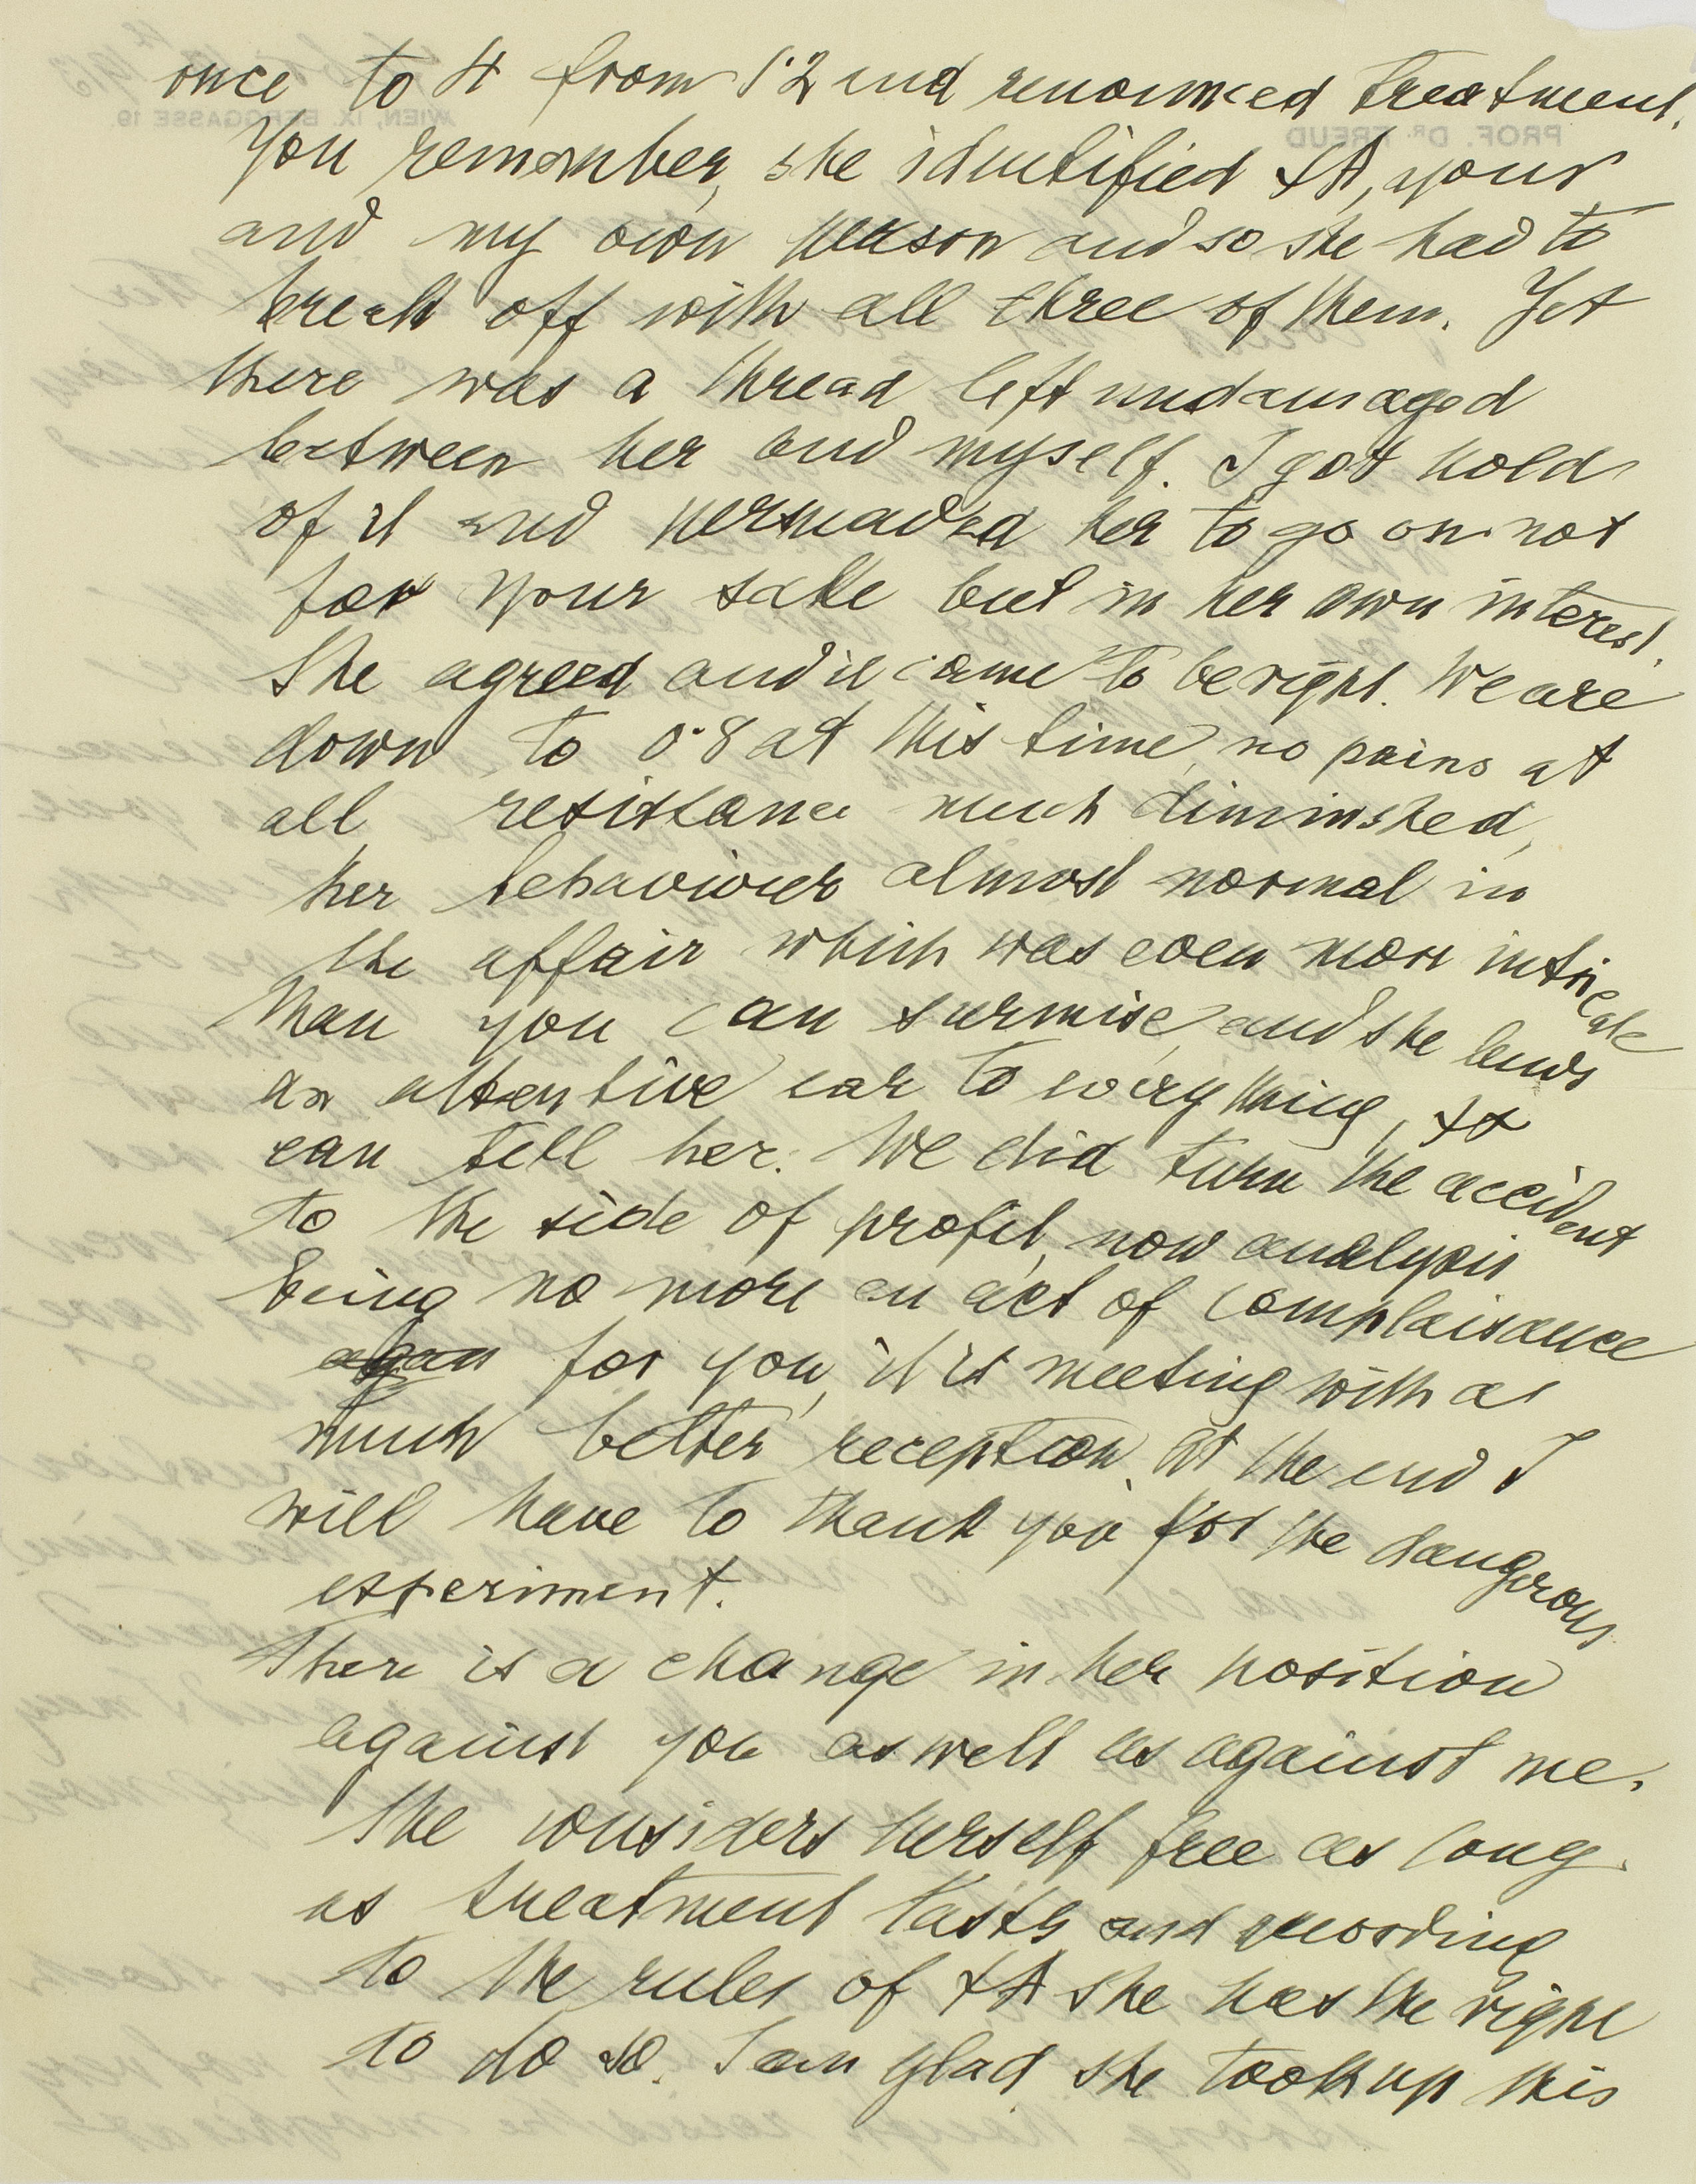 once to 4 from 1·2 and renounced treatment.
You remember, she identified ΨA, your
and my own person and so she had to
break off with all three of them. Yet
there was a thread left undamaged
between her and myself. I got hold
of it and persuaded her to go on not
for your sake but in her own interest.
She agreed and it came to be right. We are
down to 0·8 at this time, no pains at
all, resistance much diminished,
her behaviour almost normal in
the affair which was even more intricate
than you can surmise, and she lends
an attentive ear to everything, ΨA
can tell her. We did turn the accident
to the side of profit, now analysis
being no more an act of complaisance
for you, it is meeting with a
much better reception. At the end I
will have to thank you for the dangerous
experiment.
There is a change in her position
against you as well as against me.
She considers herself free as long
as treatment lasts and according
to the rules of ΨA she has the right
to do so. I am glad she took up this
PROF. DR. FREUD
WIEN, IX. BERGGASSE 19.